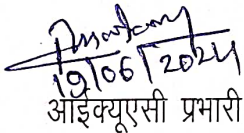 19/06/2024
आईक्यूएसी प्रभारी